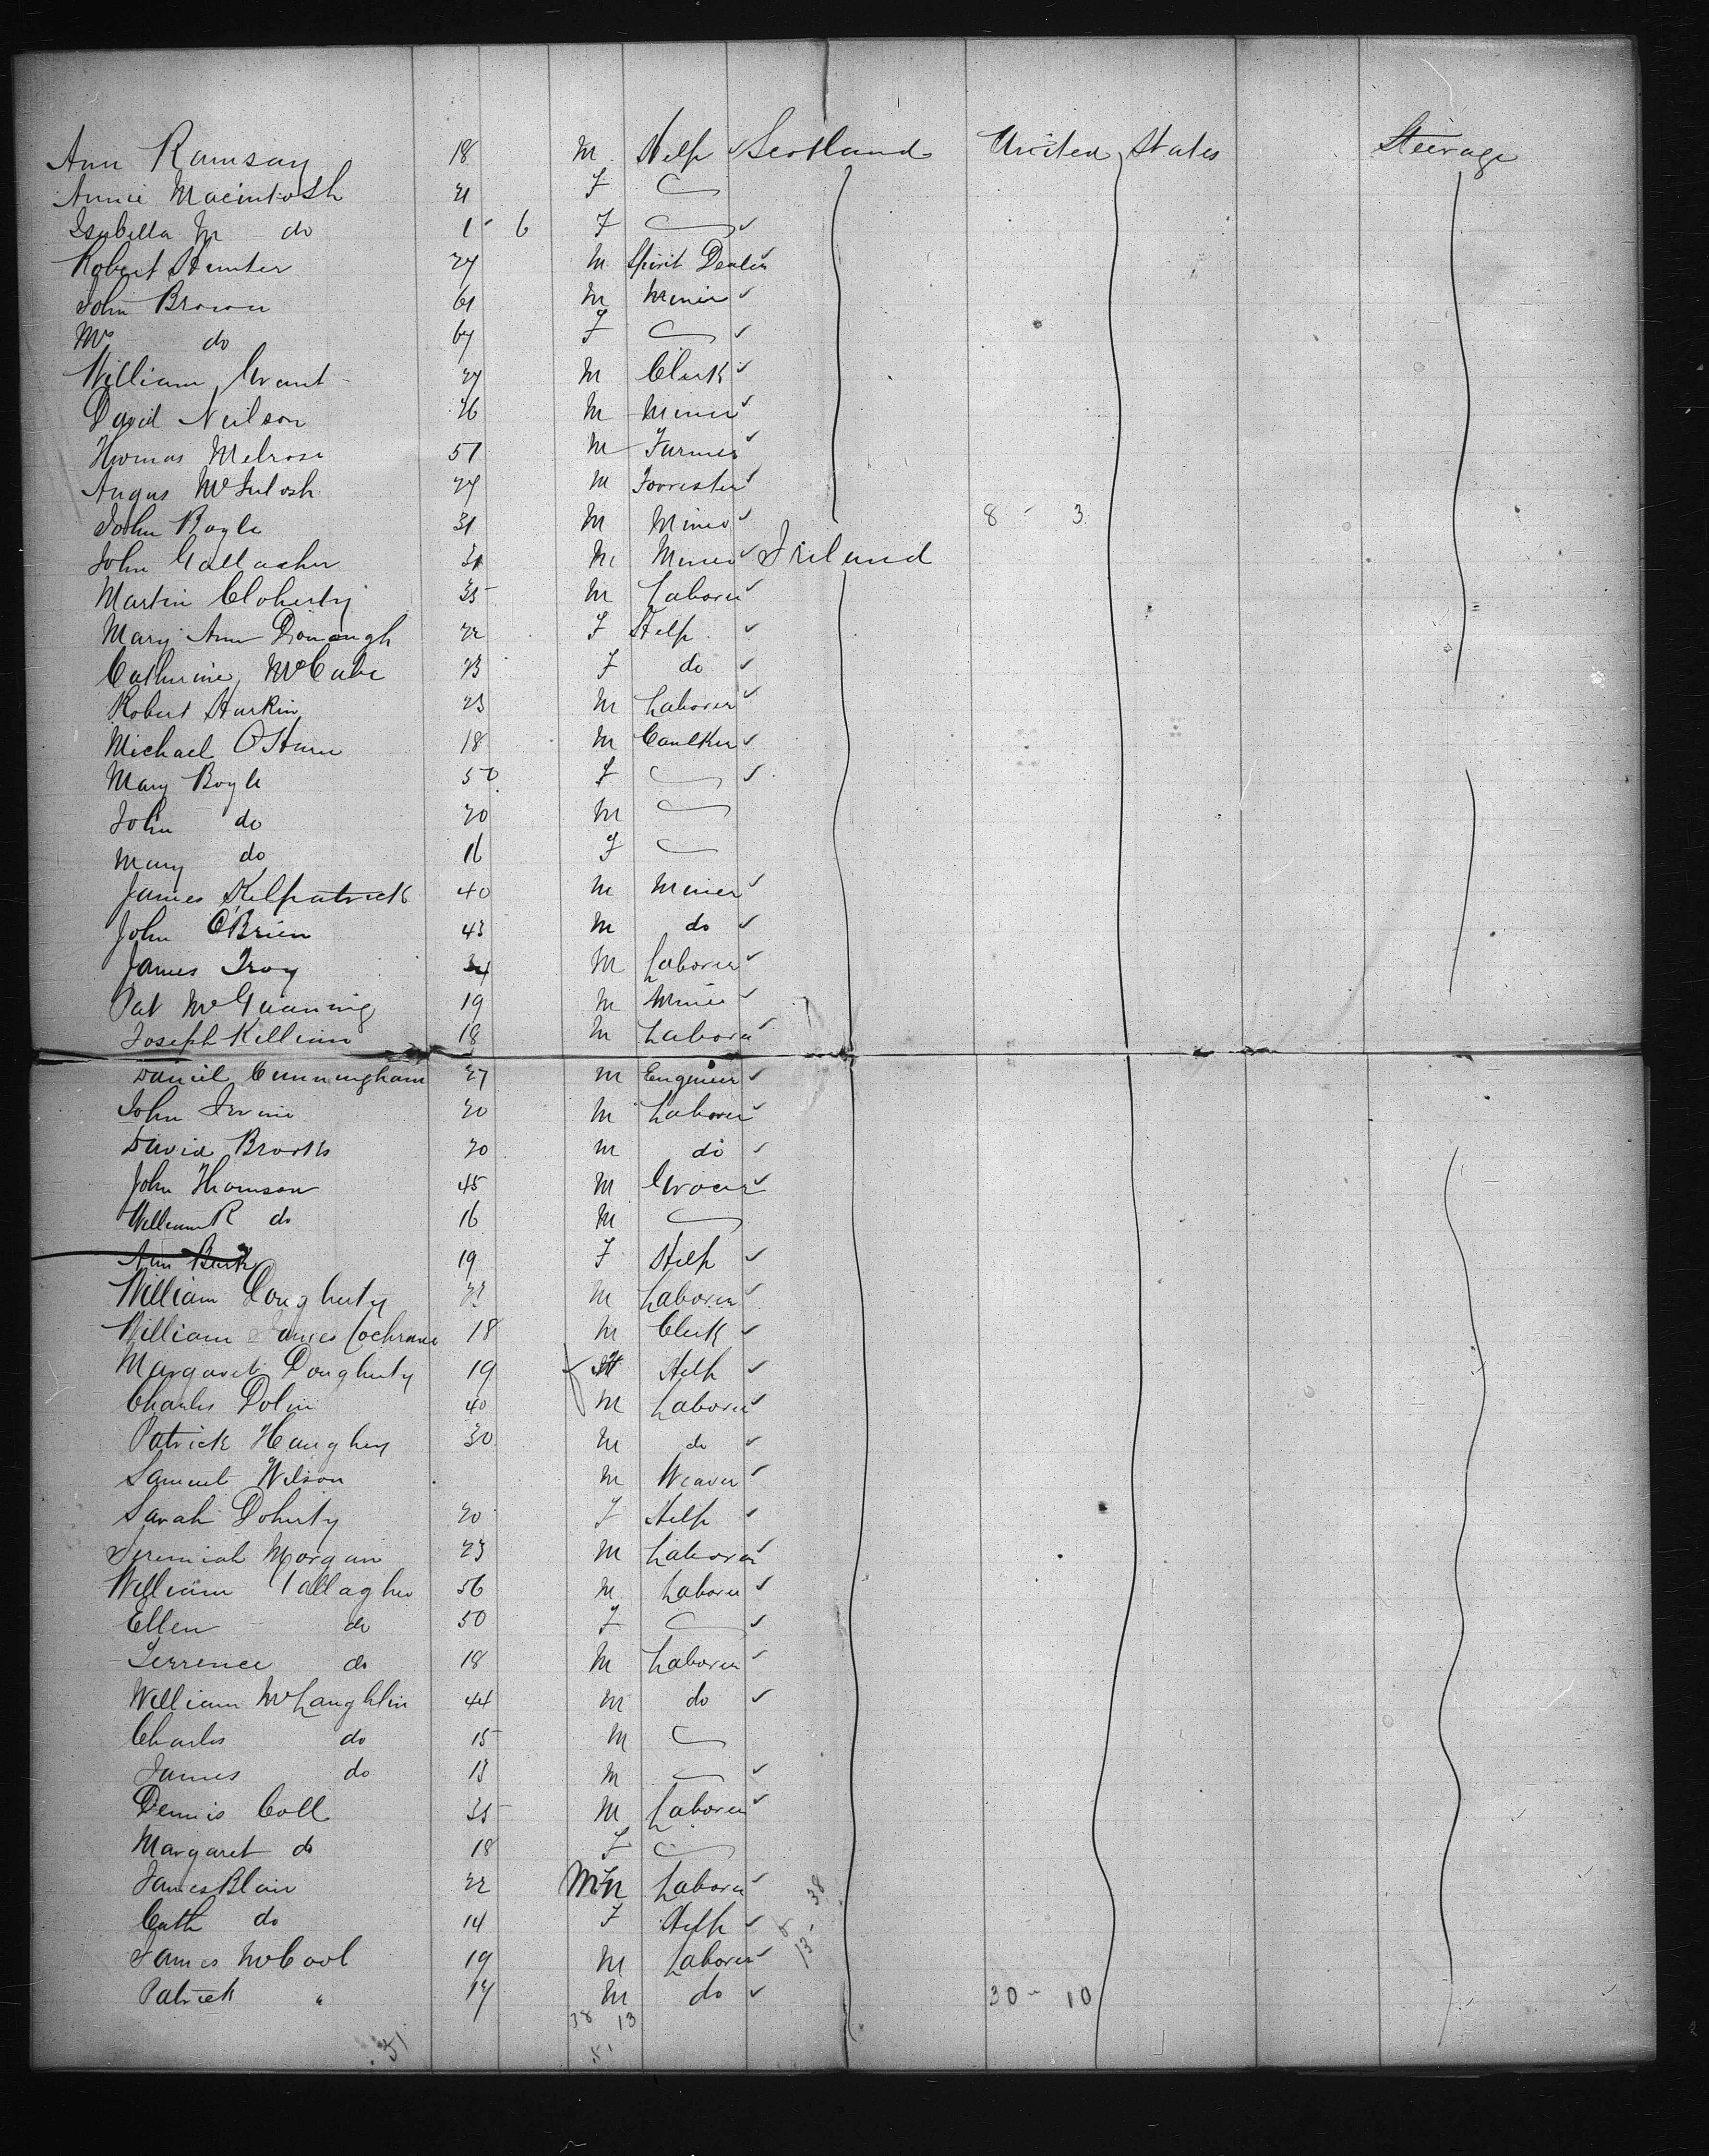 Ann Ramsay 18 M Help ✓ Scotland United States Steerage
Annie Macintosh 21 F
Isabella Jr do 1 6 F ✓
Robert Hunter 27 M Spirit Dealer
John Brown 61 M Miner ✓
Mrs do 67 F ✓
William Grant 27 M Clerk ✓
David Neilson 26 M Miner ✓
Thomas Melrose 57 M Farmer ✓
Angus McIntosh 27 M Forrester ✓
John Boyle 31 M Miner ✓ 8 - 3
John Gallacher 31 M Miner ✓ Ireland
Martin Cloherty 35 M Laborer ✓
Mary Ann Donough 22 F Help ✓
Catherine McCabe 23 F do ✓
Robert Harkin 23 M Laborer ✓
Michael O'Hara 18 M Caulker ✓
Mary Boyle 50 F ✓
John do 20 M
Mary do 16 F
James Kilpatrick 40 M Miner ✓
John O'Brien 43 M do ✓
James Troy M Laborer ✓
Pat 19 M Miner ✓
Joseph Killian 18 M Laborer ✓
Daniel Cunningham 27 M Engineer ✓
John Irvine 20 M Laborer ✓
David Brooks 20 M do ✓
John Thomson 45 M Grocer ✓
William R do 16 M
Ann Burk 19 F Help ✓
William Dougherty M Laborer ✓
William James Cochrane 18 M Clerk ✓
Margaret Dougherty 19 f Help ✓
Charles Dolin 40 M Laborer ✓
Patrick Haughey 30 M do ✓
Samuel Wilson M Weaver ✓
Sarah Doherty 20 F Help ✓
Jeremiah Morgan 23 M Laborer ✓
William Gallagher 56 M Laborer ✓
Ellen do 50 F ✓
Terrence do 18 M Laborer ✓
William McLaughlin 44 M do ✓
Charles do 15 M
James do 13 M ✓
Dennis Coll 35 M Laborer ✓
Margaret do 18 F
James Blair 22 M Laborer ✓
Cath do 14 F Help ✓ 13 - 38
James McCool 19 M Laborer ✓
Patrick " 17 M do ✓ 30 - 10
38 13
51 51